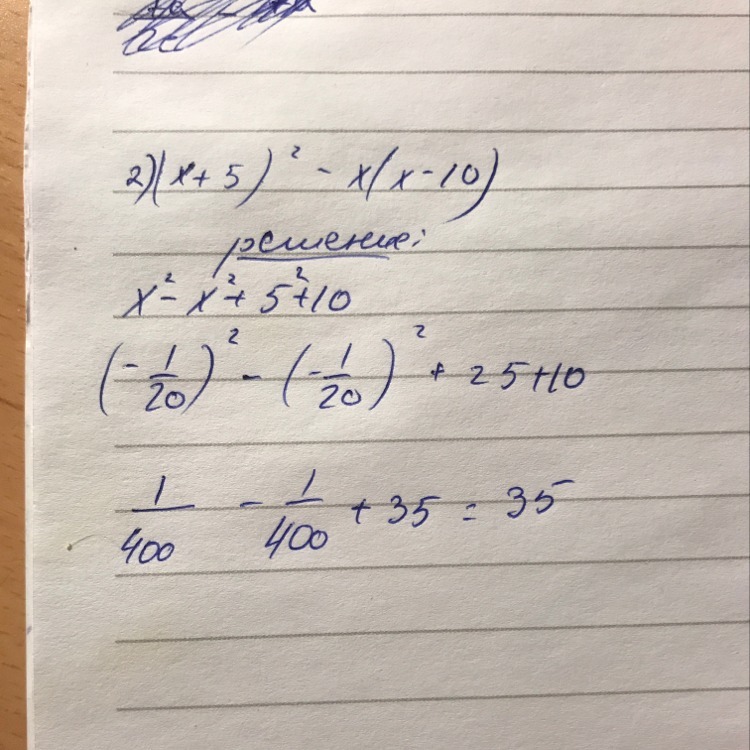 2)(x+5)² - x(x-10)
решение:
x² - x² + 5² + 10
(-1/20)² - (-1/20)² + 25+10
1/400 - 1/400 + 35 = 35